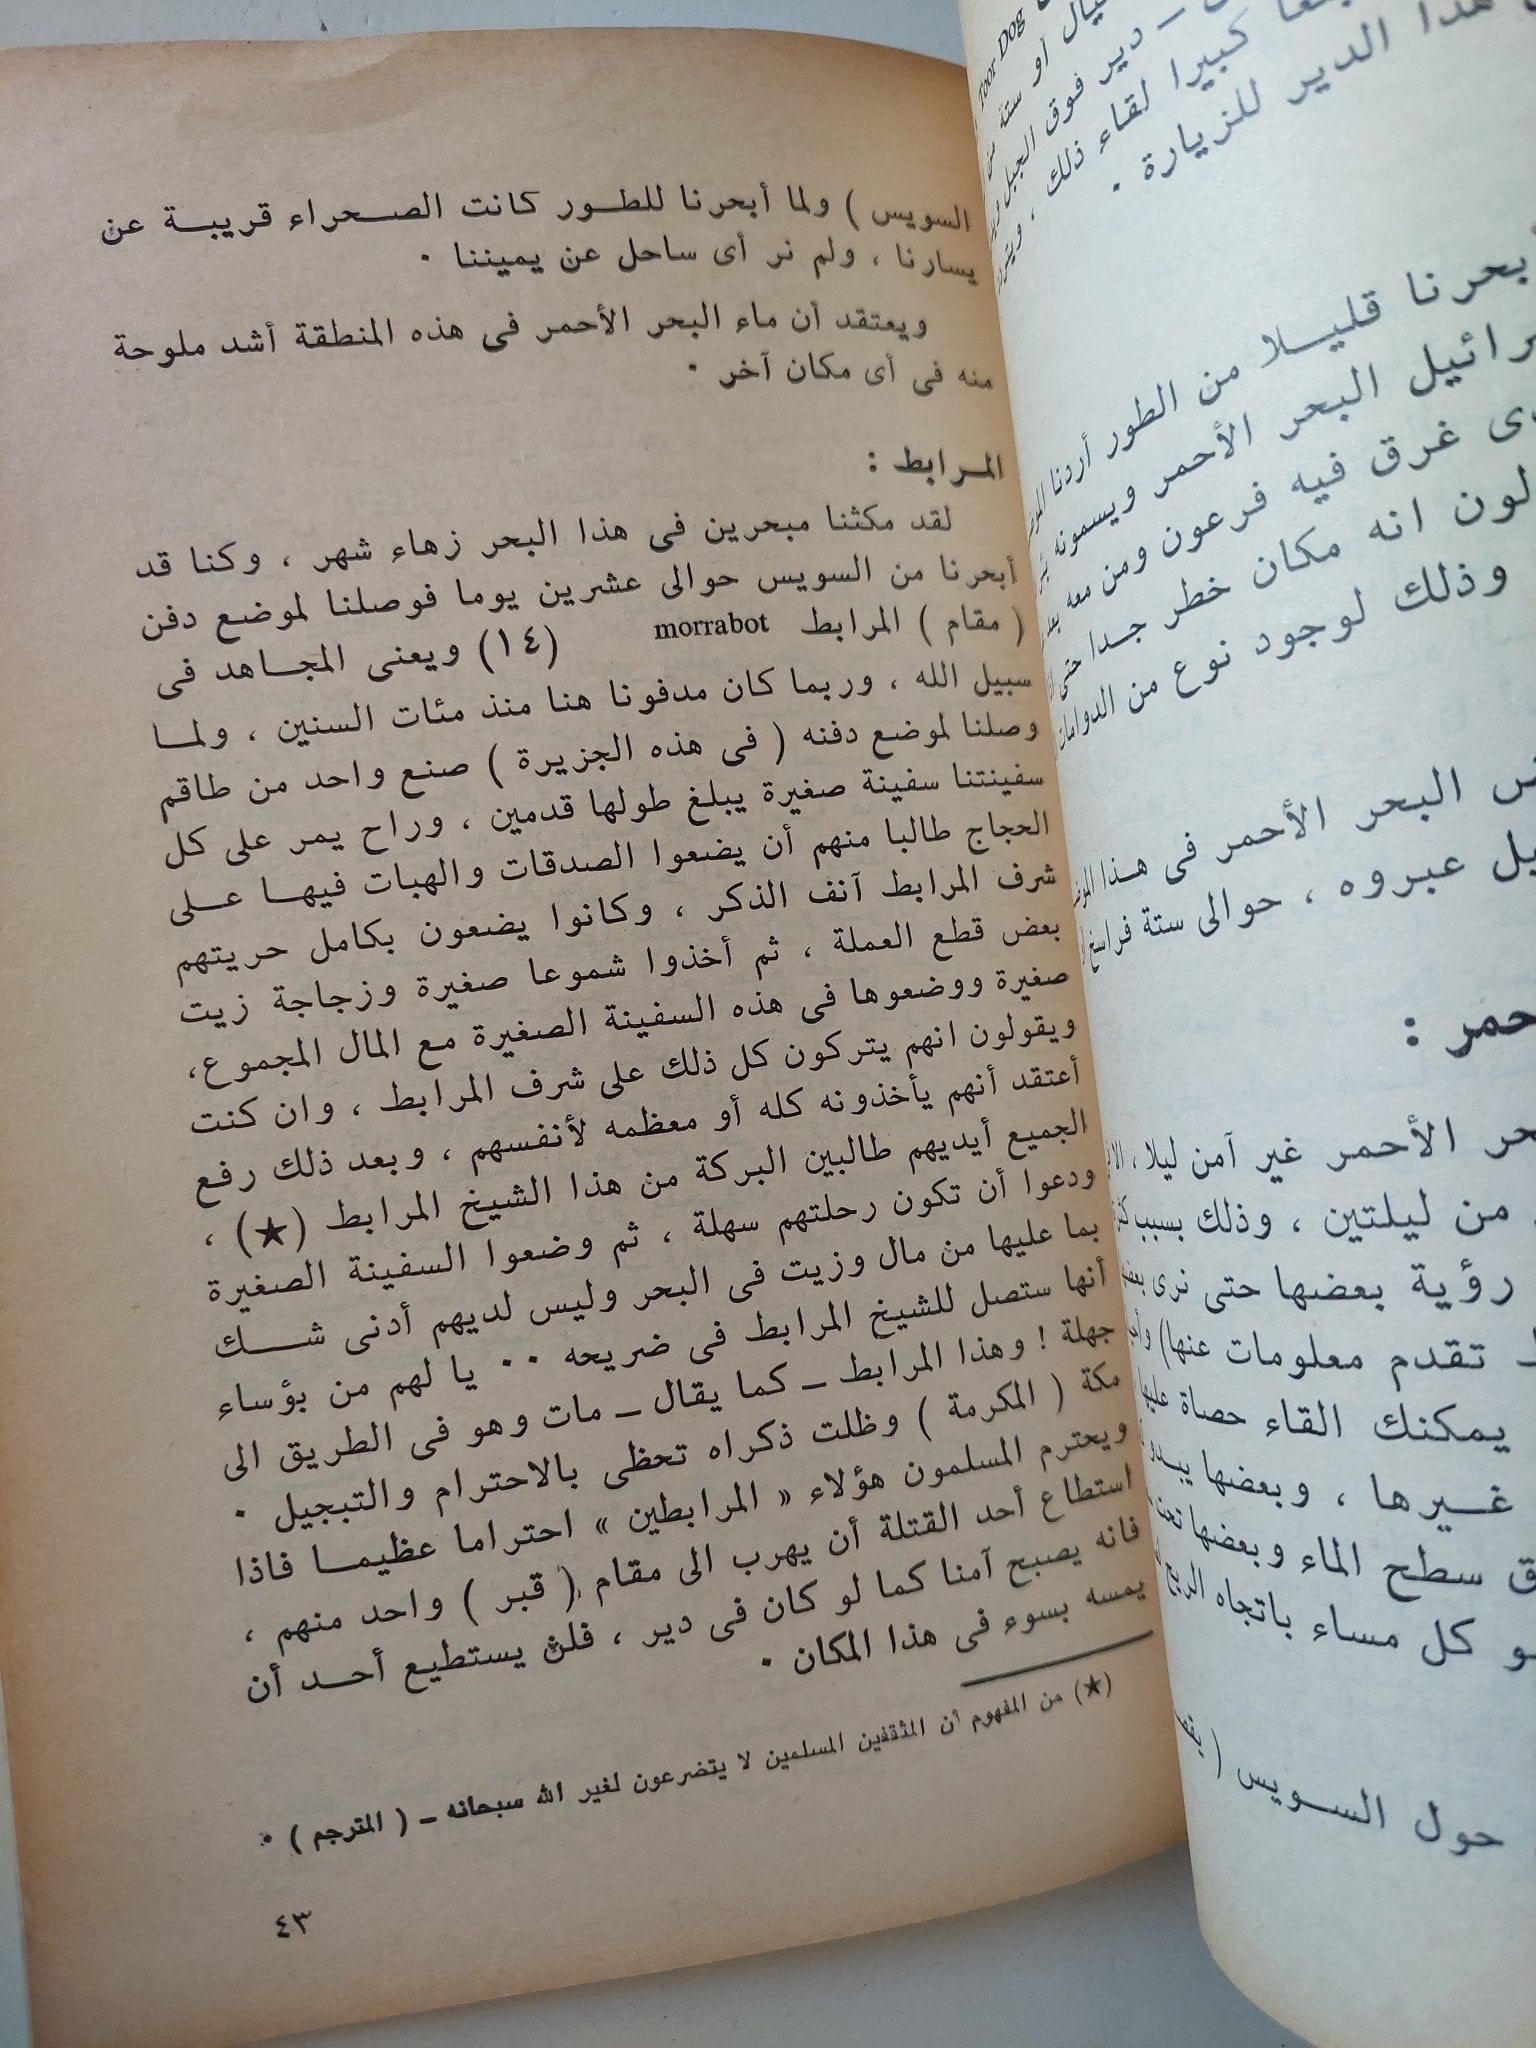 Toor Dog
دير فوق الجبل
كبيرا لقاء ذلك ،
هذا الدير للزيارة .
أبحرنا قليلا من الطور أردنا
البحر الأحمر ويسمونه
غرق فيه فرعون ومن معه
انه مكان خطر جدا حتى
وذلك لوجود نوع من الدوامات
البحر الأحمر فى هذا
عبروه ، حوالى ستة فراسخ
الأحمر غير آمن ليلا ،
من ليلتين ، وذلك بسبب
رؤية بعضها حتى نرى
تقدم معلومات عنها)
يمكنك القاء حصاة
غيرها ، وبعضها
سطح الماء وبعضها
كل مساء باتجاه الريح
حول السويس (
السويس ) ولما أبحرنا للطور كانت الصحراء قريبة عن
يسارنا ، ولم نر أى ساحل عن يميننا .
ويعتقد أن ماء البحر الأحمر فى هذه المنطقة أشد ملوحة
منه فى أى مكان آخر .
المرابط :
لقد مكثنا مبحرين فى هذا البحر زهاء شهر ، وكنا قد
أبحرنا من السويس حوالى عشرين يوما فوصلنا لموضع دفن
( مقام ) المرابط morrabot (١٤) ويعنى المجاهد فى
سبيل الله ، وربما كان مدفونا هنا منذ مئات السنين ، ولما
وصلنا لموضع دفنه ( فى هذه الجزيرة ) صنع واحد من طاقم
سفينتنا سفينة صغيرة يبلغ طولها قدمين ، وراح يمر على كل
الحجاج طالبا منهم أن يضعوا الصدقات والهبات فيها على
شرف المرابط آنف الذكر ، وكانوا يضعون بكامل حريتهم
بعض قطع العملة ، ثم أخذوا شموعا صغيرة وزجاجة زيت
صغيرة ووضعوها فى هذه السفينة الصغيرة مع المال المجموع،
ويقولون انهم يتركون كل ذلك على شرف المرابط ، وان كنت
أعتقد أنهم يأخذونه كله أو معظمه لأنفسهم ، وبعد ذلك رفع
الجميع أيديهم طالبين البركة من هذا الشيخ المرابط (★) ،
ودعوا أن تكون رحلتهم سهلة ، ثم وضعوا السفينة الصغيرة
بما عليها من مال وزيت فى البحر وليس لديهم أدنى شك
أنها ستصل للشيخ المرابط فى ضريحه .. يا لهم من بؤساء
جهلة ! وهذا المرابط ـ كما يقال ـ مات وهو فى الطريق الى
مكة ( المكرمة ) وظلت ذكراه تحظى بالاحترام والتبجيل .
ويحترم المسلمون هؤلاء « المرابطين » احتراما عظيما فاذا
استطاع أحد القتلة أن يهرب الى مقام ( قبر ) واحد منهم ،
فانه يصبح آمنا كما لو كان فى دير ، فلن يستطيع أحد أن
يمسه بسوء فى هذا المكان .
(★) من المفهوم أن المثقفين المسلمين لا يتضرعون لغير الله سبحانه ـ ( المترجم ) .
٤٣